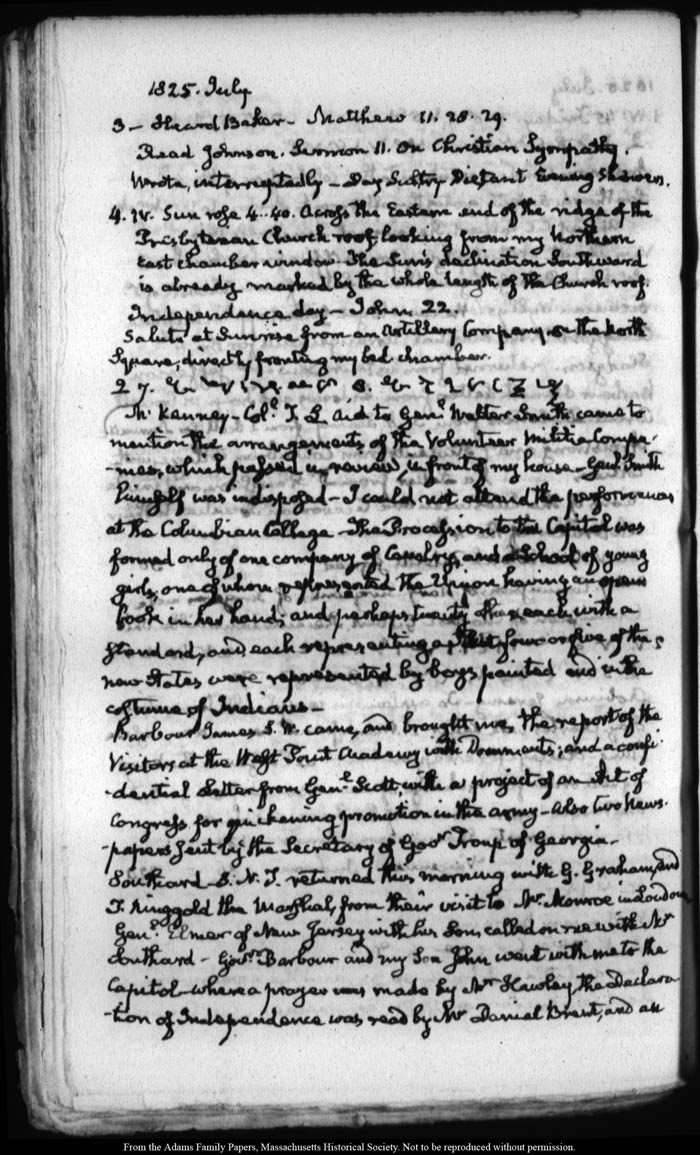 1825. July
3 – Heard Baker – Matthew 11. 28. 29.
Read Johnson. Sermon 11. On Christian Sympathy.
Wrote, interruptedly – Day Sultry Distant Evening Showers.
4. IV. Sun rose 4..40. Across the Eastern end of the ridge of the
Presbyterian Church roof, looking from my Northern
East chamber window – The Sun's declination Southward
is already marked by the whole length of the Church roof.
Independence day – John 22.
Salute at Sunrise from an Artillery Company on the North
Square, directly fronting my bed chamber.
27.
Th: Kenney – Col. T. L. Aid to Genl. Walter Smith came to
mention the arrangements of the Volunteer Militia Compa-
-nies, which passed in review, in front of my house – Genl. Smith
himself was indisposed – I could not attend the performances
at the Columbian College – The Procession to the Capitol was
formed only of one company of Cavalry, and a School of young
girls, one of whom represented the Union having an open
book in her hand, and perhaps twenty others each with a
standard, and each representing a State, four or five of the
new States were represented by boys painted and in the
costume of Indians –
Barbour James S. W. came, and brought me, the report of the
Visitors at the West Point Academy with Documents; and a confi-
-dential Letter from Genl. Scott, with a project of an Act of
Congress for quickening promotion in the army – Also two News-
-papers sent by the Secretary of Govr. Troup of Georgia –
Southard – S. N. J. returned this morning with G. Graham, and
T. Ringgold the Marshal, from their visit to Mr. Monroe in Loudoun
Genl. Elmer of New Jersey with his Son, called on me with Mr
Southard – Govr. Barbour and my Son John went with me to the
Capitol – where a prayer was made by Mr Hawley, the Declara-
-tion of Independence was read by Mr Daniel Brent, and an
From the Adams Family Papers, Massachusetts Historical Society. Not to be reproduced without permission.